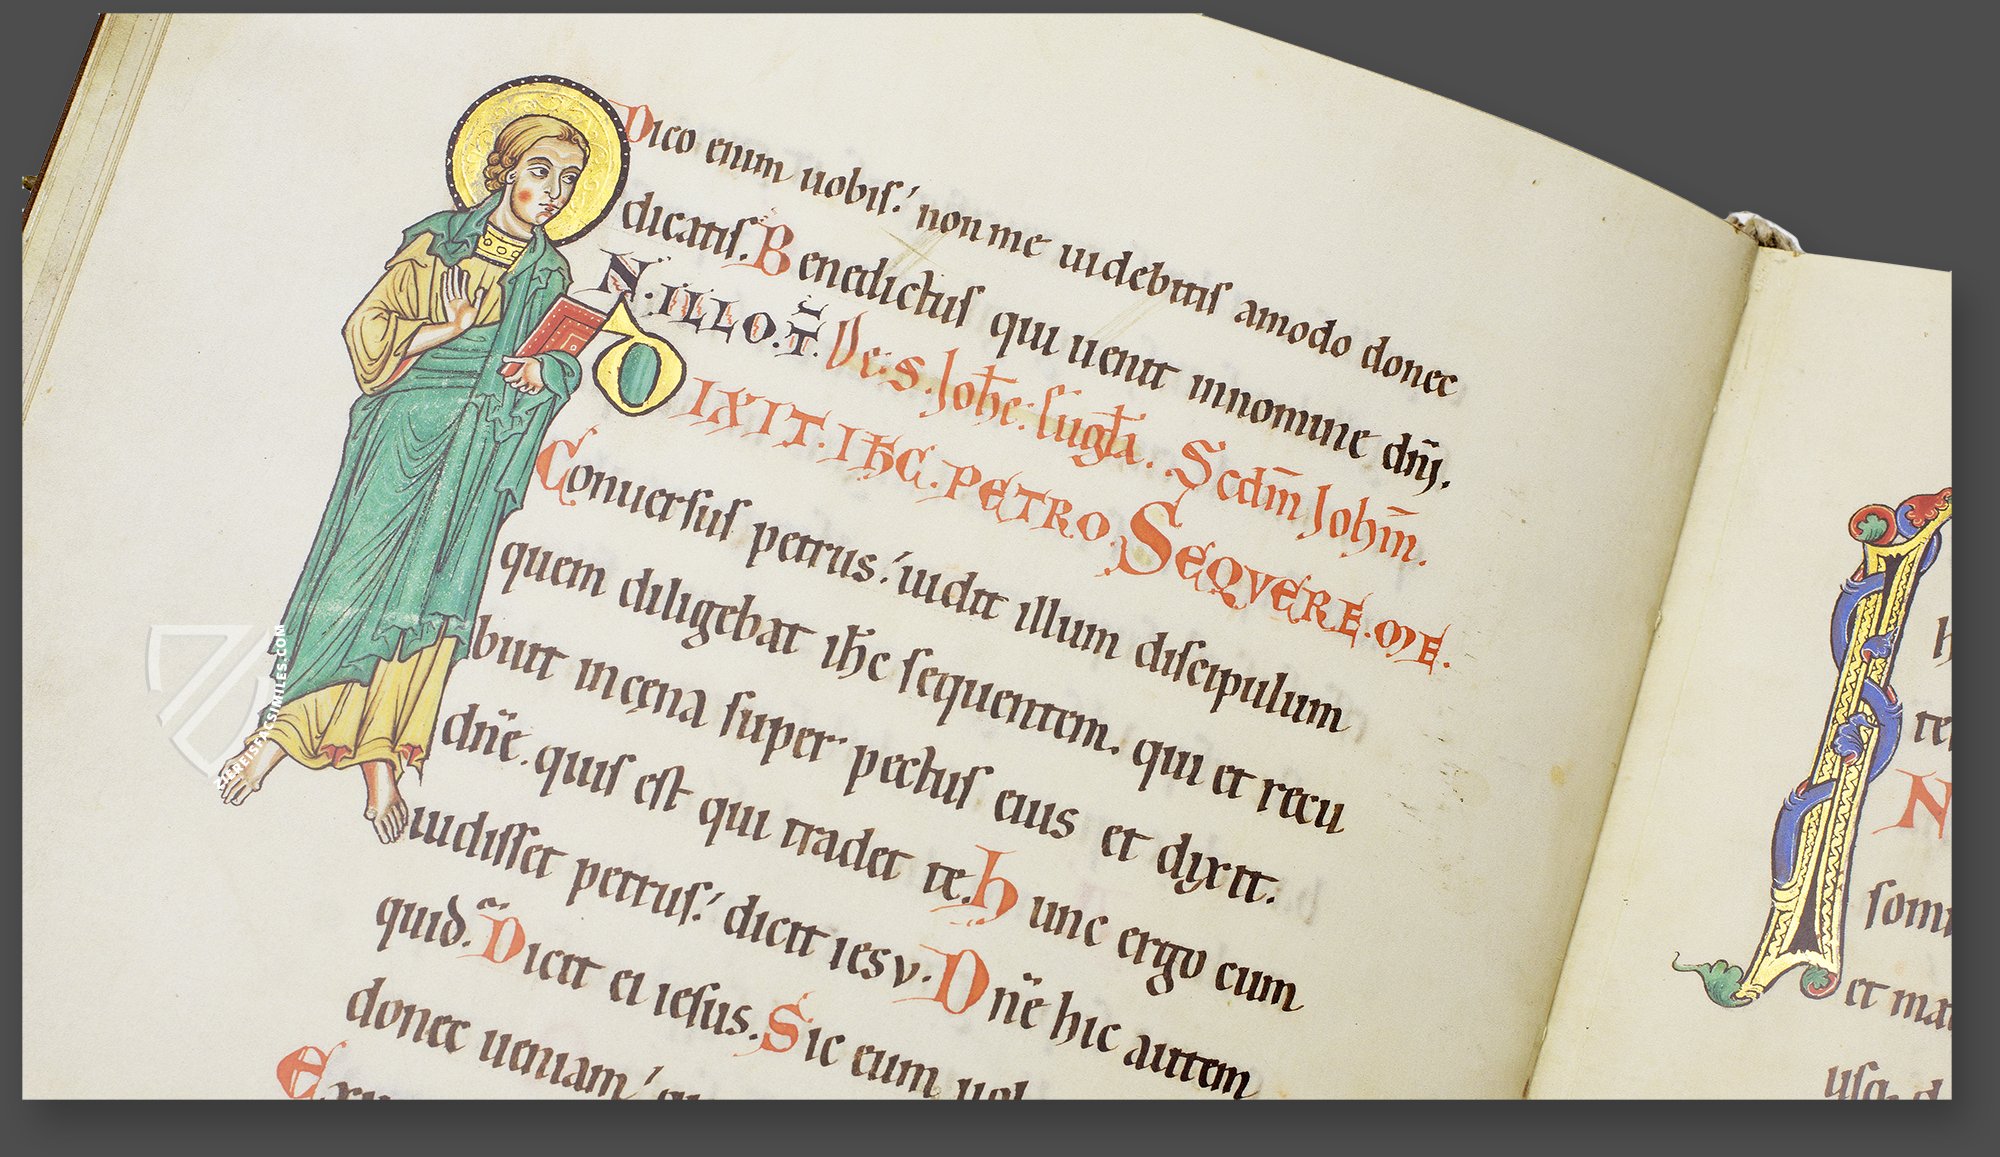 Dico enim uobis: non me uidebitis amodo donec
dicatis. Benedictus qui uenit innomine dñi.
N. ILLO. T̄. De. s. Johe: euglã. Scdm̄ Johm̄.
DIXIT. IHC. PETRO. SEQVERE. ME.
Conuersus petrus: uidit illum discipulum
quem diligebat ihc sequentem. qui et recu
buit incęna super pectus eius et dyxit.
dñe. quis est qui tradet te. Hunc ergo cum
uidisset petrus: dicit iesv. Dñe hic autem
quid. Dicit ei iesus. Sic eum uol
donec ueniam
h
te
N
somn
et mat
ZIEREISFACSIMILES.COM